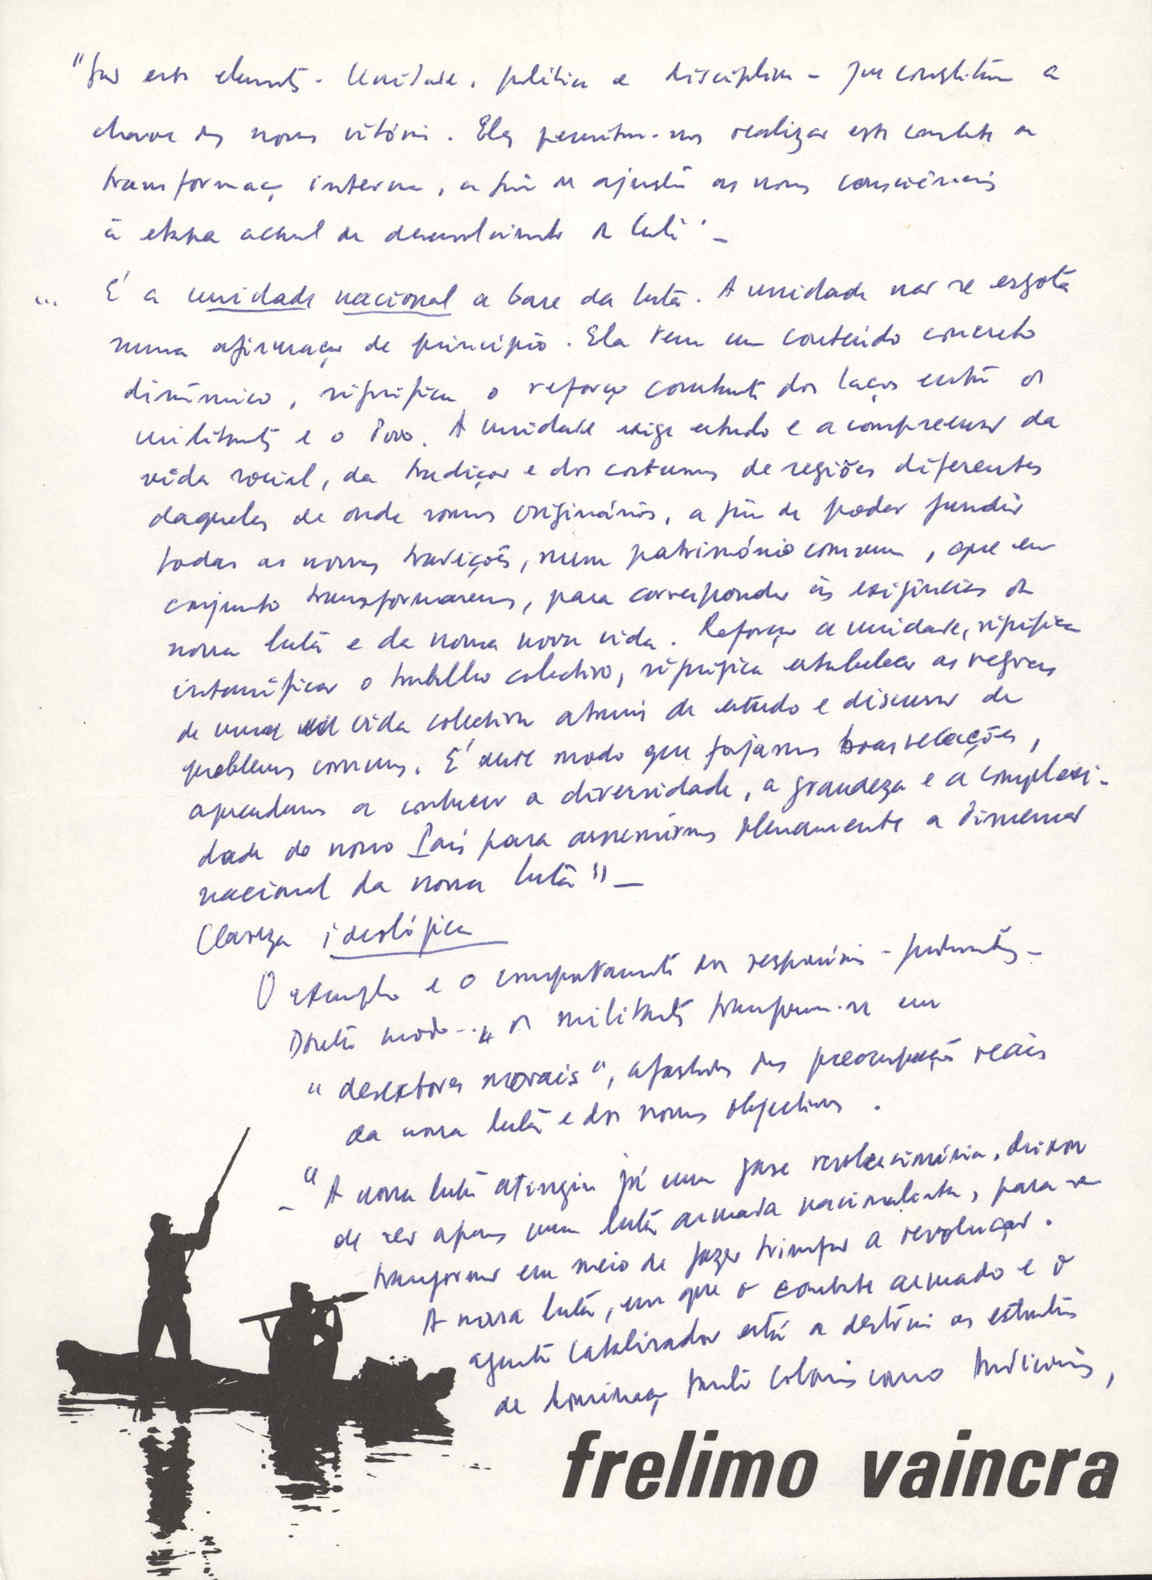 "São estes elementos - Unidade, política e disciplina - que constituem a
chave das nossas vitórias. Eles permitem-nos realizar este combate de
transformação interna, a fim de ajustar as nossas consciências
à etapa actual de desenvolvimento da luta" -
... É a unidade nacional a base da luta. A unidade não se esgota
numa afirmação de princípio. Ela tem um conteúdo concreto
dinâmico, significa o reforço constante dos laços entre os
militantes e o Povo. A unidade exige estudo e a compreensão da
vida social, da tradição e dos costumes de regiões diferentes
daquelas de onde somos originários, a fim de poder fundir
todas as nossas tradições, num património comum, que em
conjunto transformaremos, para corresponder às exigências da
nossa luta e da nossa nova vida. Reforçar a unidade, significa
intensificar o trabalho colectivo, significa estabelecer as regras
de uma vida colectiva através de estudo e discussão de
problemas comuns. É deste modo que forjamos boas relações,
aprendemos a conhecer a diversidade, a grandeza e a complexi-
dade do nosso País para assumirmos plenamente a dimensão
nacional da nossa luta" -
Clareza ideológica
O exemplo e o comportamento dos responsáveis -
Deste modo... os militantes transformam-se em
"desertores morais", afastados das preocupações reais
da nossa luta e dos nossos objectivos.
- "A nossa luta atingiu já uma fase revolucionária, deixou
de ser apenas uma luta armada nacionalista, para se
transformar em meio de fazer triunfar a revolução.
A nossa luta, em que o combate armado é o
agente catalizador está a destruir as estruturas
de dominação tanto coloniais como tradicionais,
frelimo vaincra